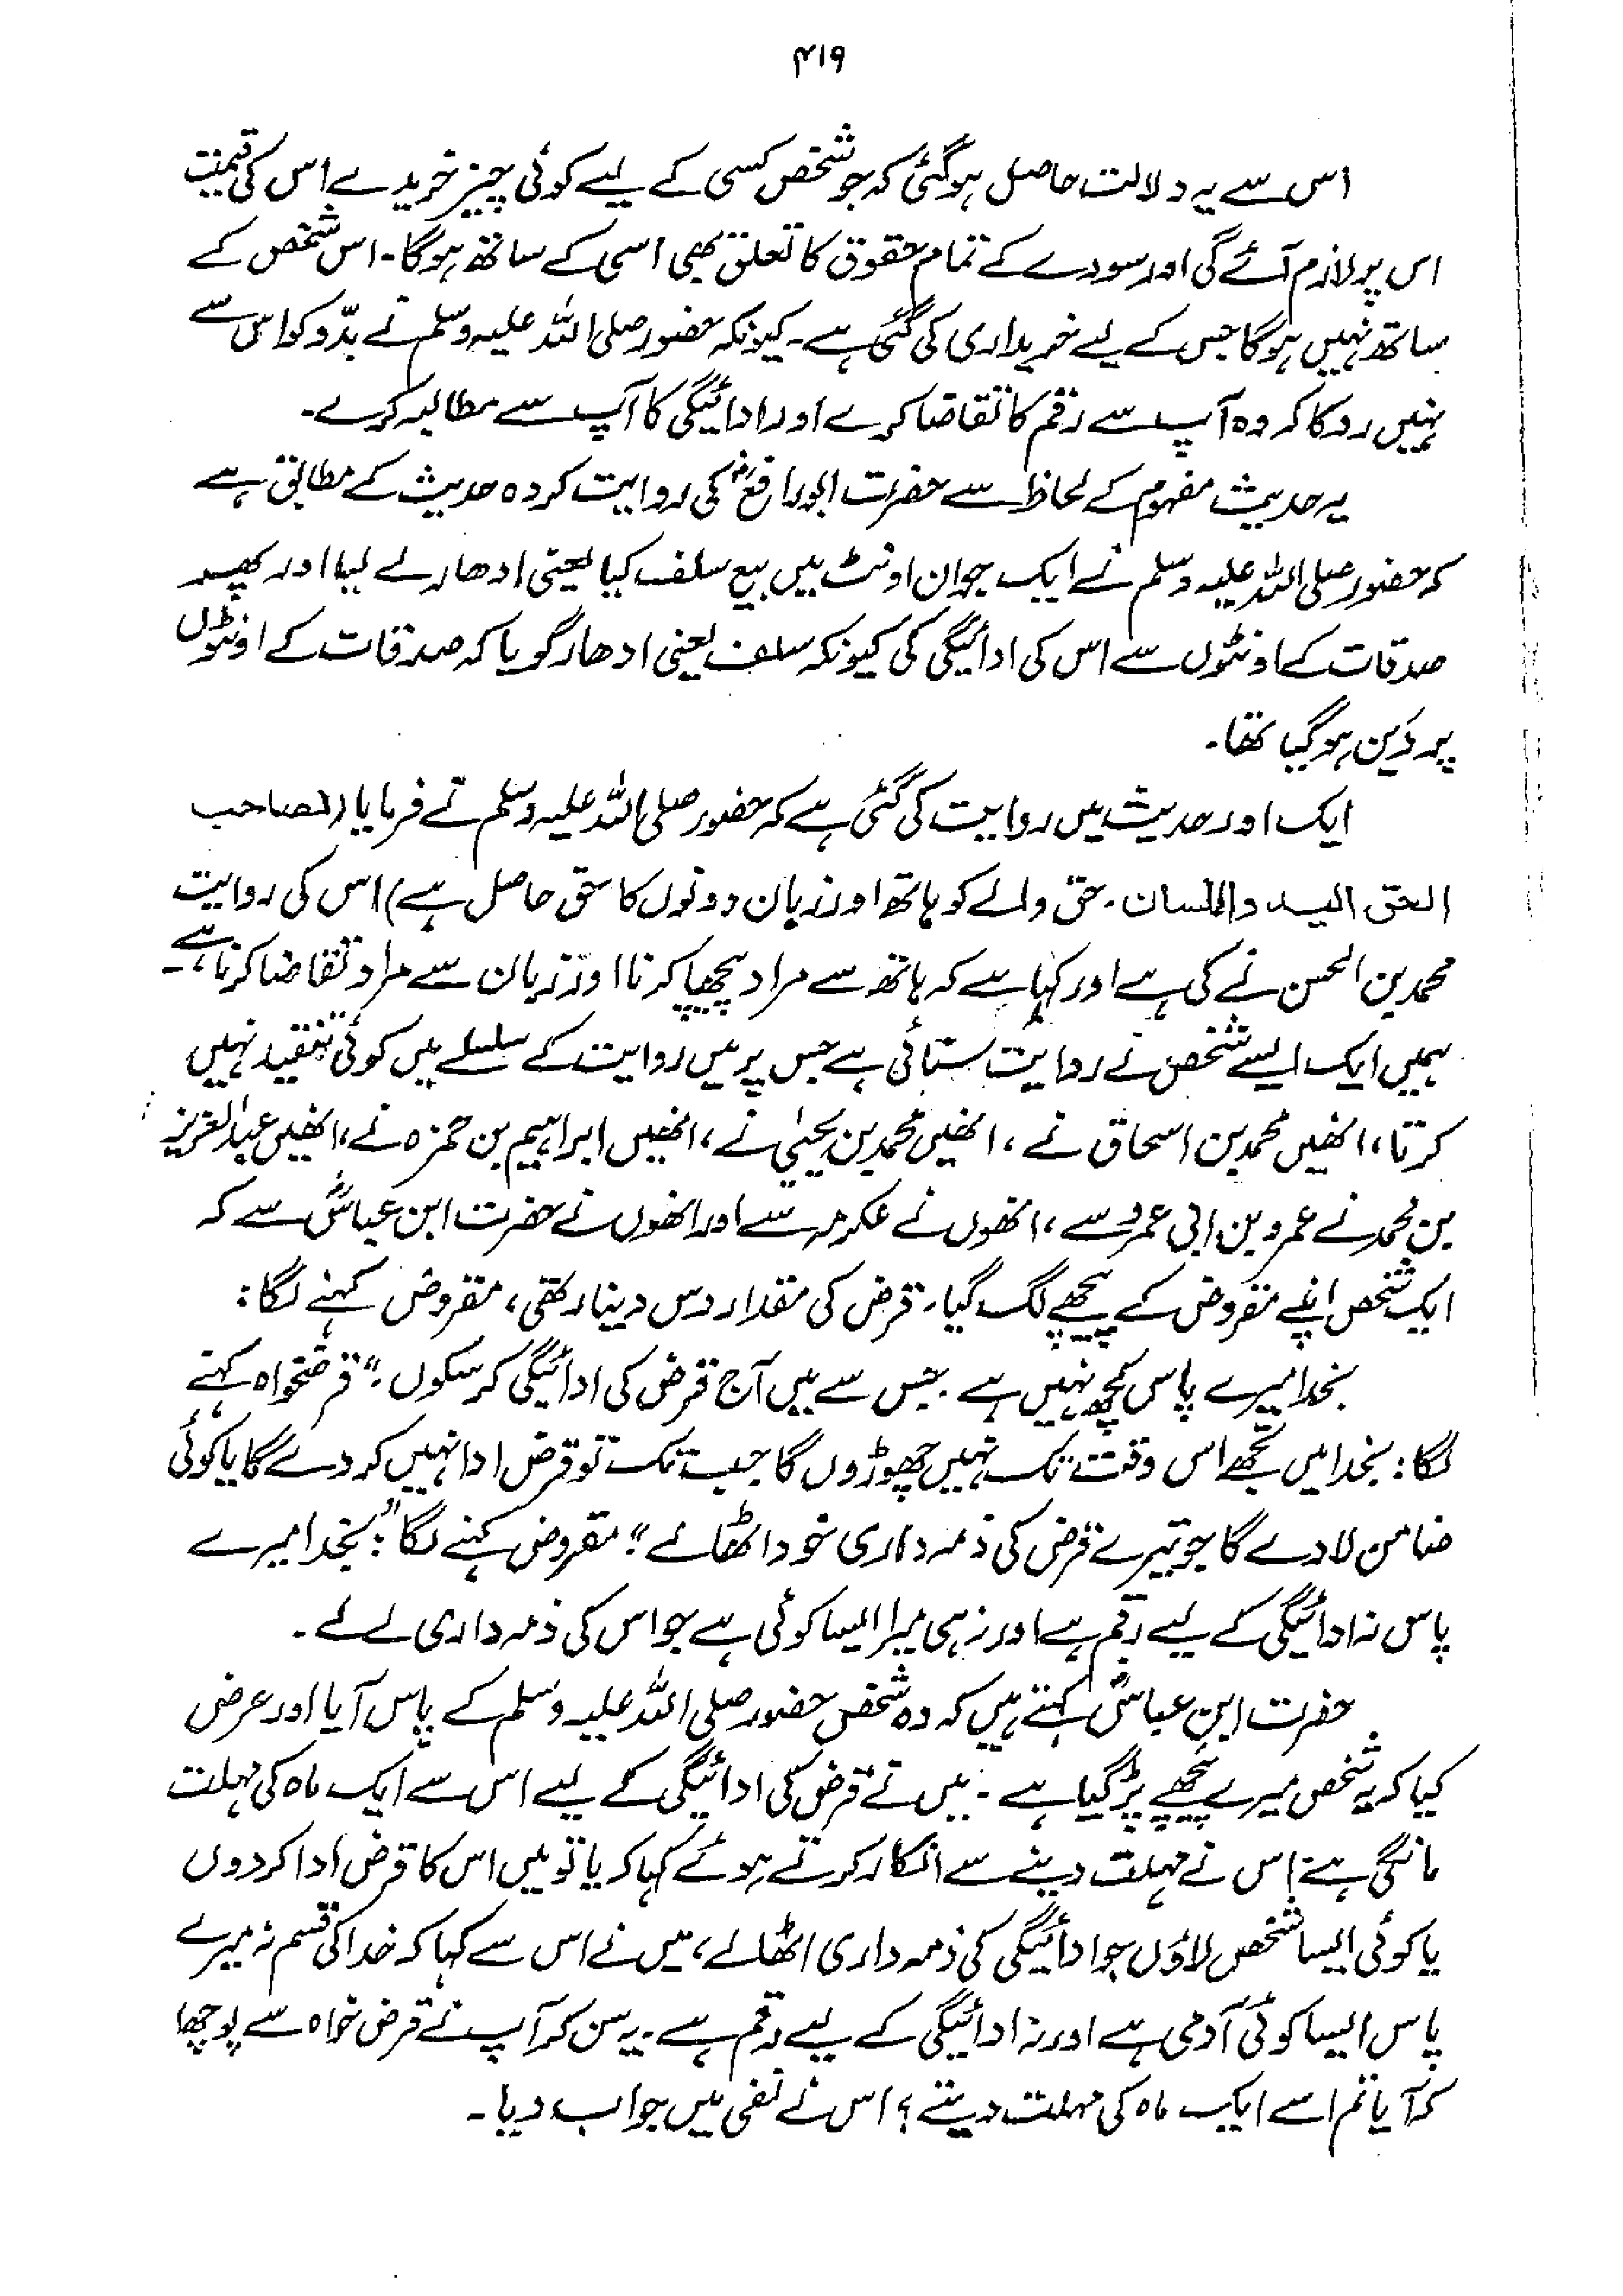 ۴۱۹
اس سے یہ دلالت حاصل ہوگئی کہ جو شخص کسی کے لیے کوئی چیز خریدے اس کی قیمت
اس پر لازم آئے گی اور سودے کے تمام حقوق کا تعلق بھی اسی کے ساتھ ہوگا۔ اس شخص کے
ساتھ نہیں ہوگا جس کے لیے خریداری کی گئی ہے۔ کیونکہ حضور صلی اللہ علیہ وسلم نے بدّو کو اس سے
نہیں روکا کہ وہ آپ سے رقم کا تقاضا کرے اور ادائیگی کا آپ سے مطالبہ کرے۔
یہ حدیث مفہوم کے لحاظ سے حضرت ابورافعؓ کی روایت کردہ حدیث کے مطابق ہے
کہ حضور صلی اللہ علیہ وسلم نے ایک جوان اونٹ میں بیع سلف کیا یعنی ادھار لے لیا اور پھر
صدقات کے اونٹوں سے اس کی ادائیگی کی کیونکہ سلف یعنی ادھار گویا کہ صدقات کے اونٹوں
پر دَین ہوگیا تھا۔
ایک اور حدیث میں روایت کی گئی ہے کہ حضور صلی اللہ علیہ وسلم نے فرمایا (لصاحب
الحق الید واللسان۔ حق والے کو ہاتھ اور زبان دونوں کا حق حاصل ہے) اس کی روایت
محمد بن الحسن نے کی ہے اور کہا ہے کہ ہاتھ سے مراد پیچھا کرنا اور زبان سے مراد تقاضا کرنا ہے۔
ہمیں ایک ایسے شخص نے روایت سنائی ہے جس پر میں روایت کے سلسلے میں کوئی تنقید نہیں
کرتا، انھیں محمد بن اسحاق نے، انھیں محمد بن یحییٰ نے، انھیں ابراہیم بن حمزہ نے، انھیں عبدالعزیز
بن محمد نے عمرو بن ابی عمرو سے، انھوں نے عکرمہ سے اور انھوں نے حضرت ابن عباسؓ سے کہ
ایک شخص اپنے مقروض کے پیچھے لگ گیا۔ قرض کی مقدار دس دینار تھی، مقروض کہنے لگا:
بخدا میرے پاس کچھ نہیں ہے۔ جس سے میں آج قرض کی ادائیگی کرسکوں۔“ قرضخواہ کہنے
لگا: بخدا میں تجھے اس وقت تک نہیں چھوڑوں گا جب تک تو قرض ادا نہیں کردے گا یا کوئی
ضامن لادے گا جو تیرے قرض کی ذمہ داری خود اٹھالے“ مقروض کہنے لگا: ”بخدا میرے
پاس نہ ادائیگی کے لیے رقم ہے اور نہ ہی میرا ایسا کوئی ہے جو اس کی ذمہ داری لے لے۔
حضرت ابن عباسؓ کہتے ہیں کہ وہ شخص حضور صلی اللہ علیہ وسلم کے پاس آیا اور عرض
کیا کہ یہ شخص میرے پیچھے پڑ گیا ہے۔ میں نے قرض کی ادائیگی کے لیے اس سے ایک ماہ کی مہلت
مانگی ہے، اس نے مہلت دینے سے انکار کرتے ہوئے کہا کہ یا تو میں اس کا قرض ادا کردوں
یا کوئی ایسا شخص لاؤں جو ادائیگی کی ذمہ داری اٹھالے، میں نے اس سے کہا کہ خدا کی قسم نہ میرے
پاس ایسا کوئی آدمی ہے اور نہ ادائیگی کے لیے رقم ہے۔ یہ سن کر آپ نے قرض خواہ سے پوچھا
کہ آیا تم اسے ایک ماہ کی مہلت دیتے؟ اس نے نفی میں جواب دیا۔